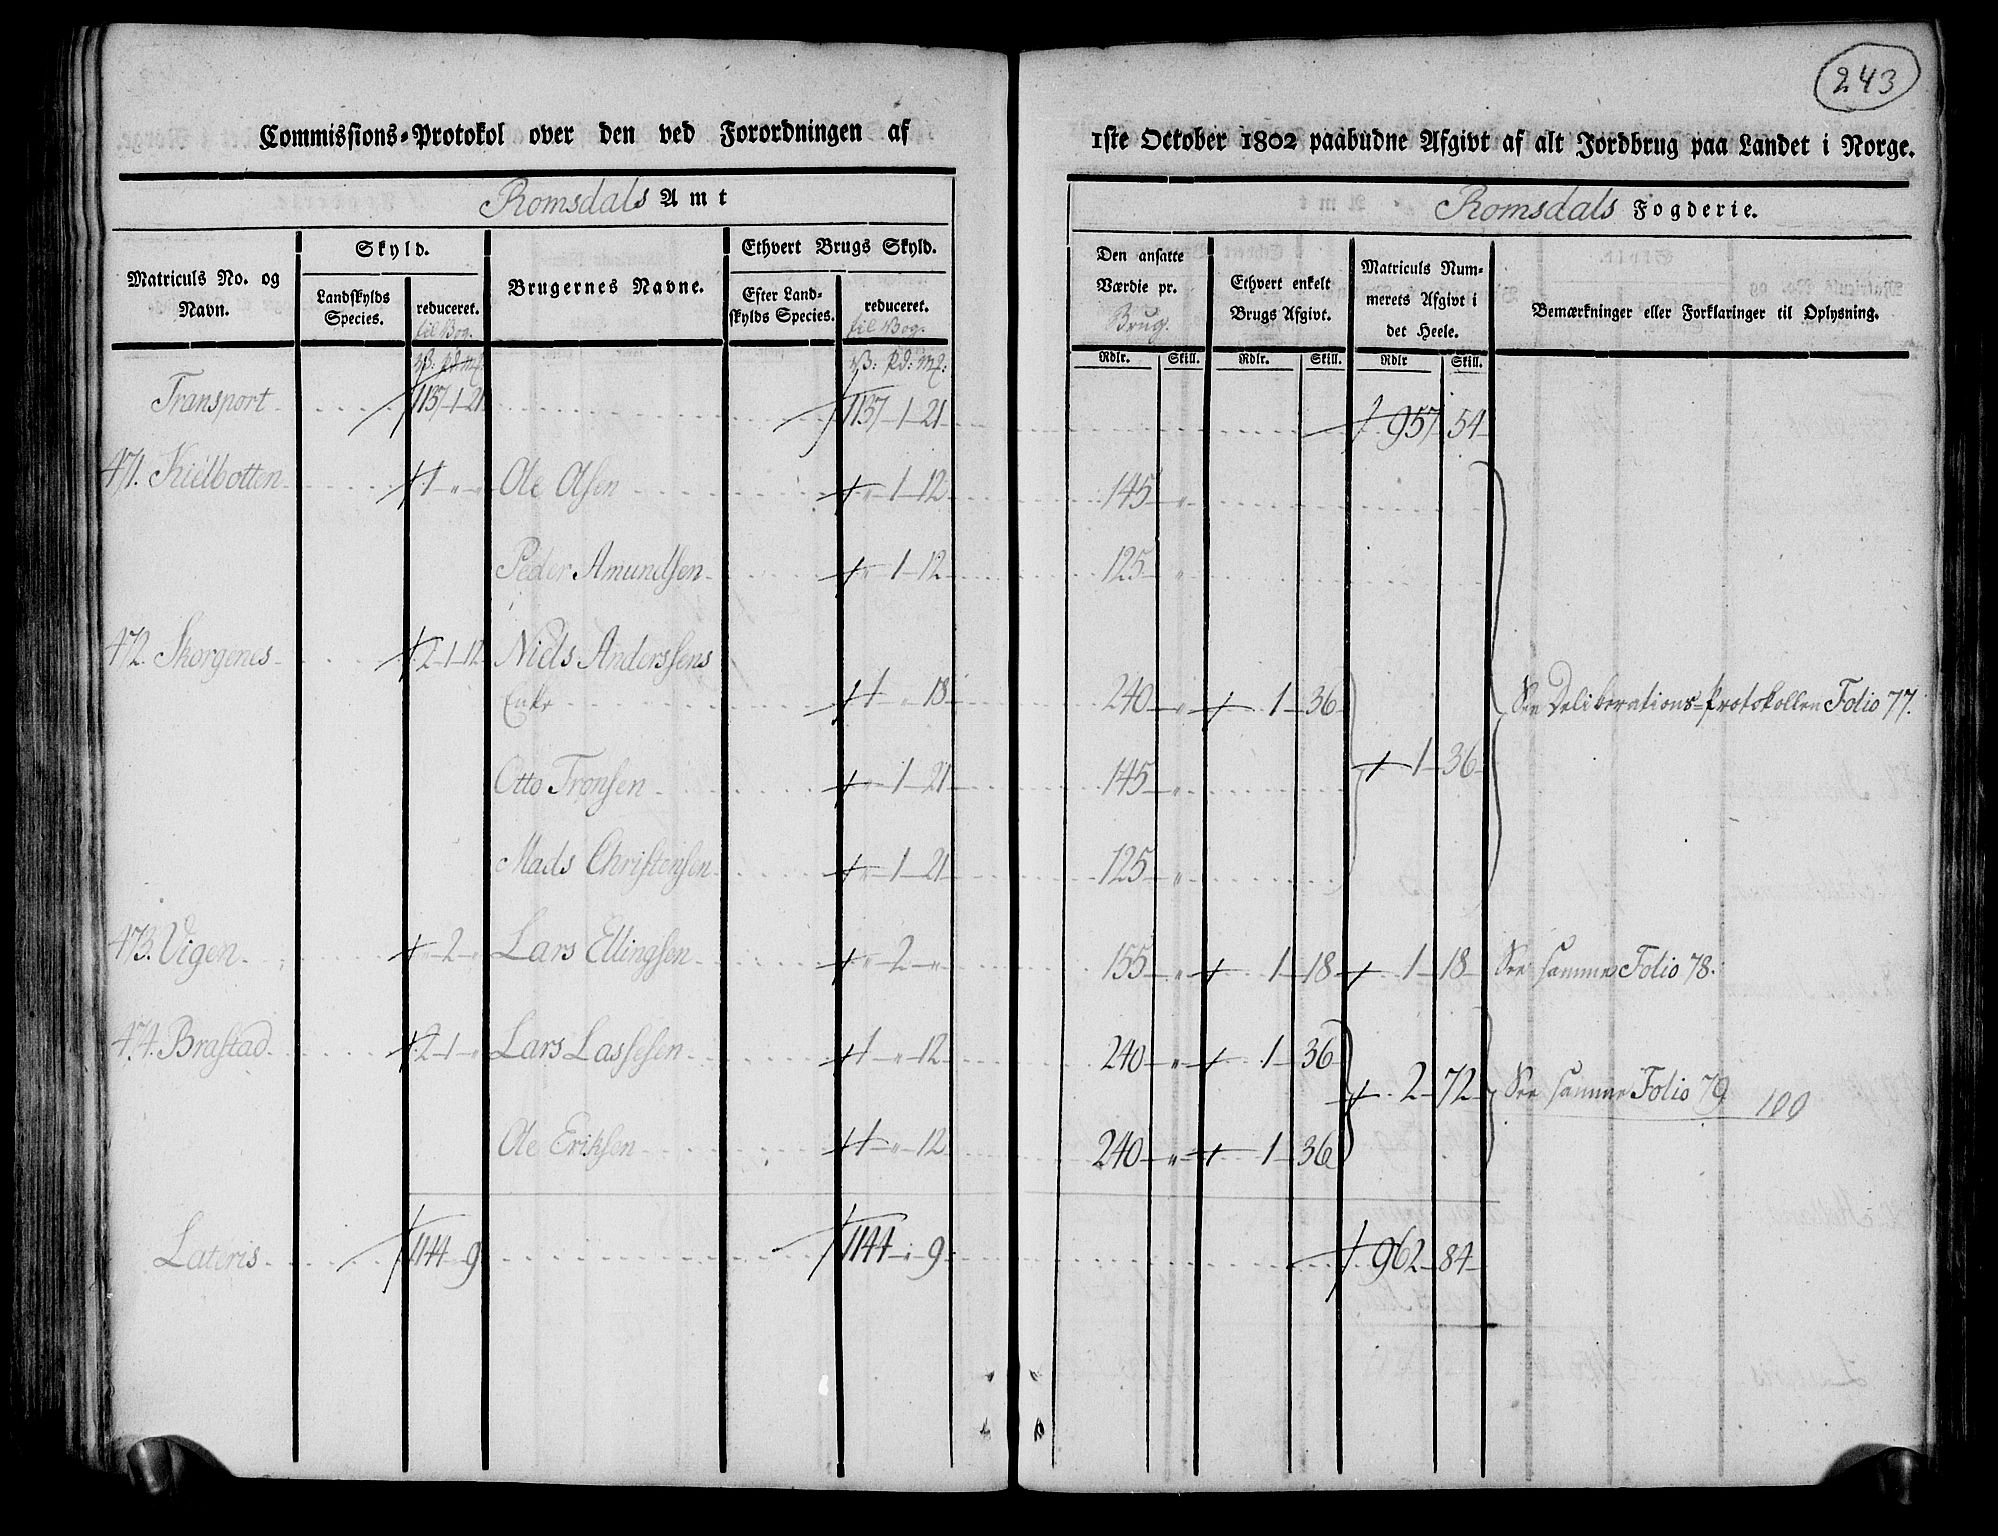 243
Commissions-Protokol over den ved Forordningen af 1ste October 1802 paabudne Afgivt af alt Jordbrug paa Landet i Norge.
Romsdals Amt
Romsdals Fogderie.
Matriculs No. og Navn.
Skyld.
Landskylds Species.
reduceret.
til Bog.
Brugernes Navne.
Ethvert Brugs Skyld.
Efter Landskylds Species.
reduceret.
til Bog.
Den ansatte Værdie pr. Brug.
Ethvert enkelt Brugs Afgivt.
Matriculs Nummerets Afgivt i det Heele.
Bemærkninger eller Forklaringer til Oplysning.
Rdlr. Skill. Rdlr. Skill. Rdlr Skill.
Transport 1137-1-21 1137-1-21 957 54
471. Kielbotten 1 " " Ole Olsen " 1-12 145 "
Peder Amundsen " 1-12 125 "
472. Skorgenes 2-1-12 Niels Anderssens
Enke 1 " 18 240 " 1-36 See Deliberations-Protokollen Folio 77.
1-36
Otto Tronsen " 1-21 145 "
Mads Christensen " 1-21 125 "
473. Vigen " 2 " Lars Ellingsen " 2 " 155 " 1-18 1-18 See samme Folio 78.
474. Brastad 2-1 " Lars Lassesen 1 " 12 240 " 1-36
2-72 See samme Folio 79 100
Ole Eriksen 1 " 12 240 " 1-36
Lateris 1144 " 9 1144 " 9 962-84